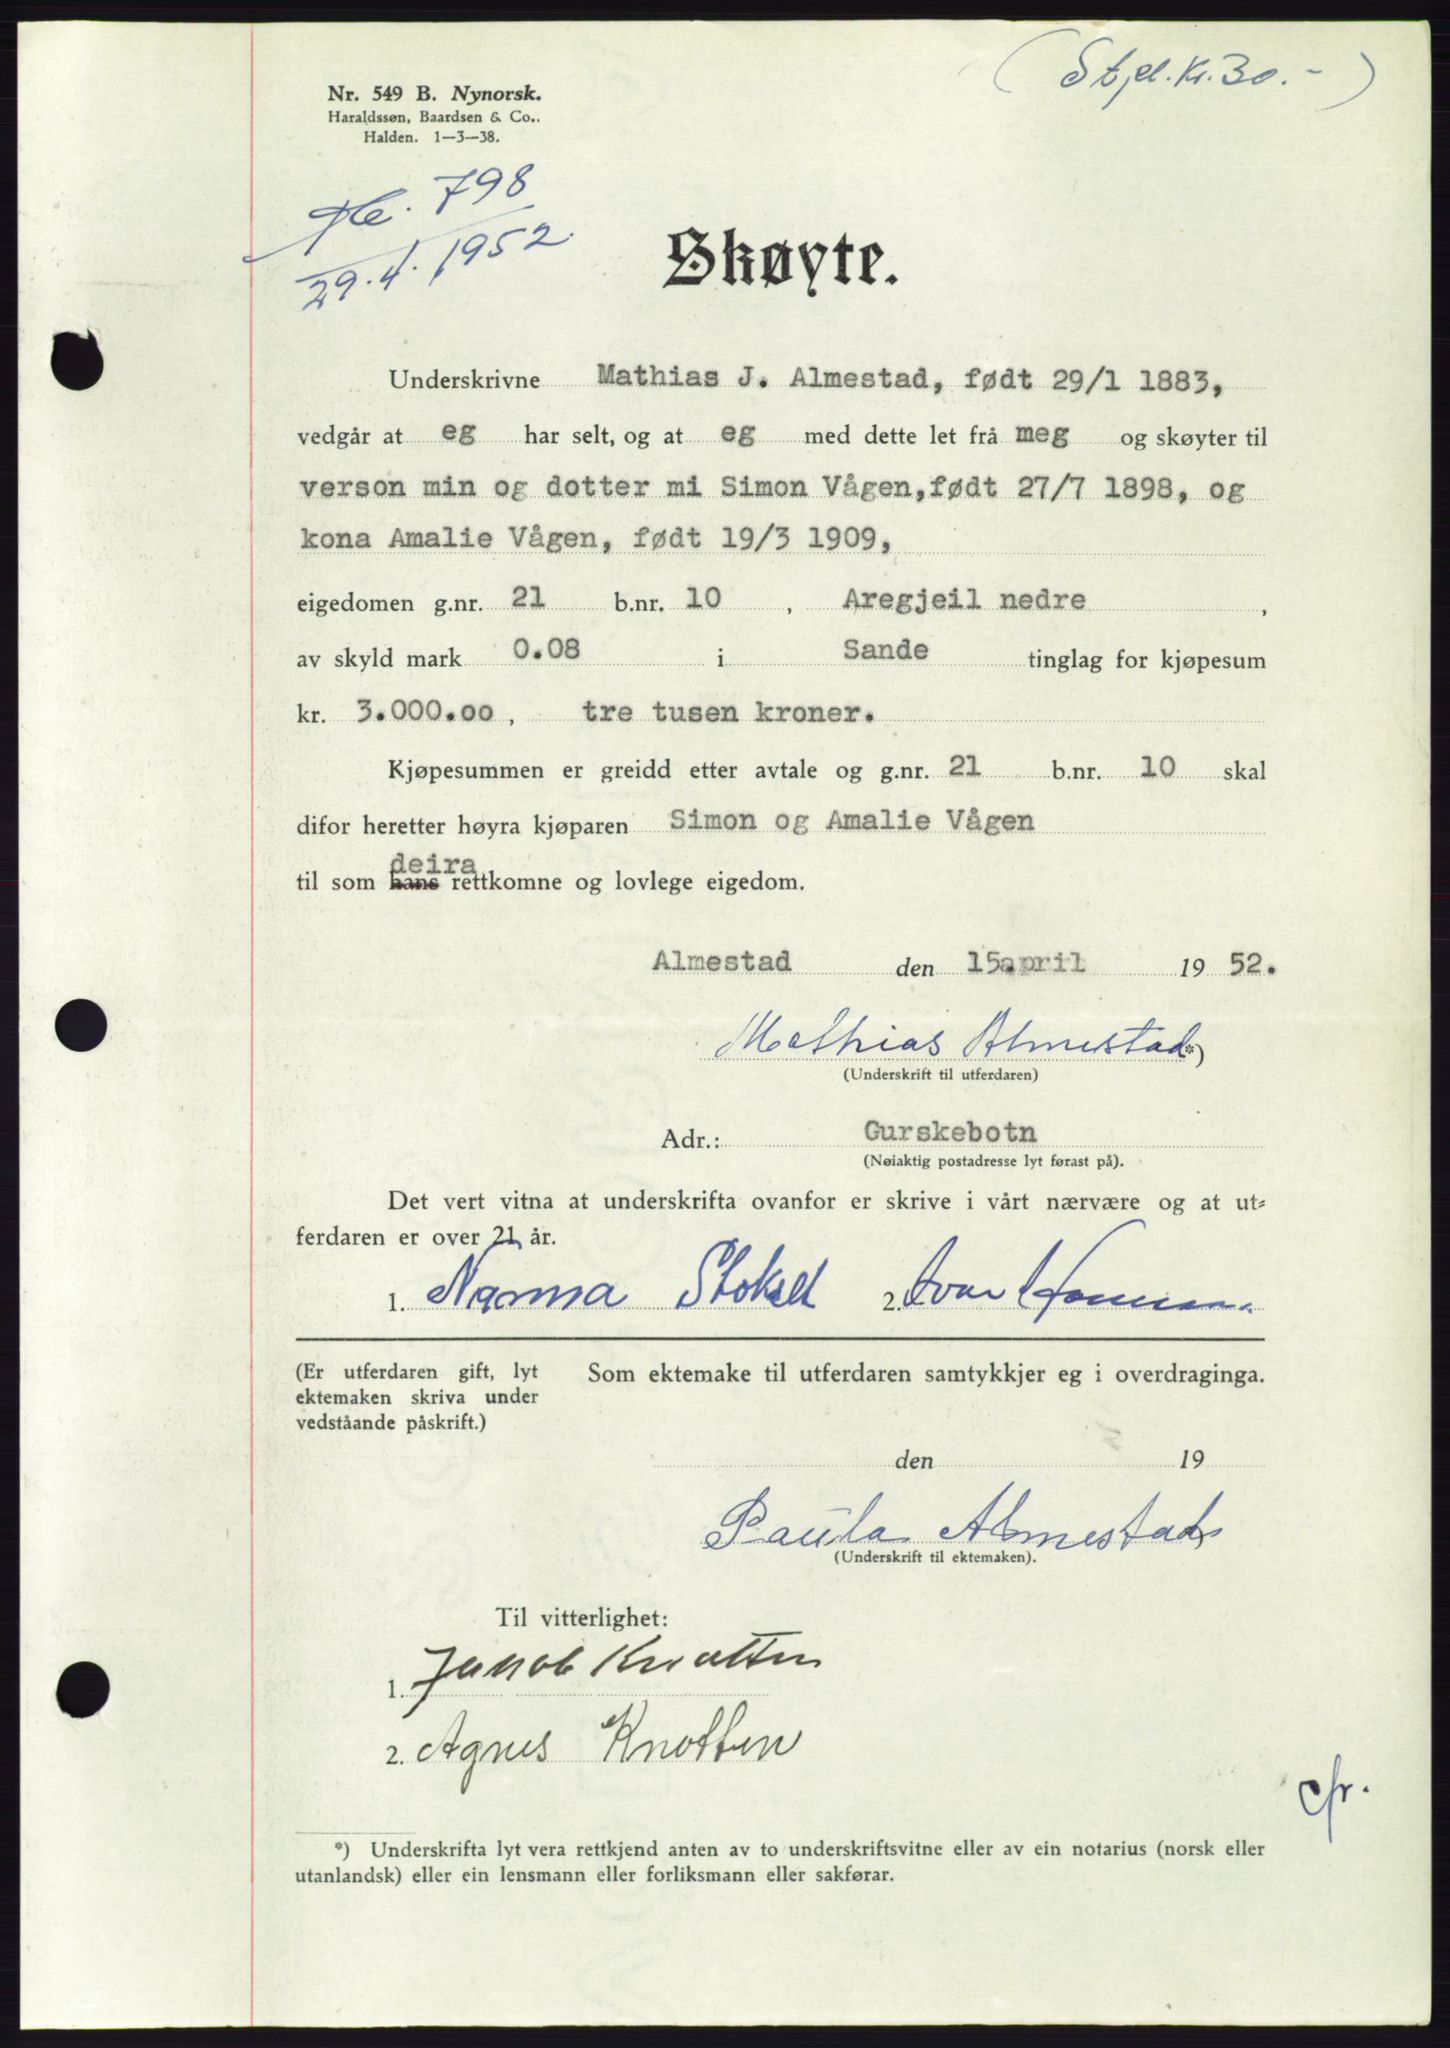 (Stpl. Kr. 30.-)
Nr. 549 B. Nynorsk.
Haraldssøn, Baardsen & Co..
Halden. 1—3—38.
798
29.4.1952
Skøyte.
Underskrivne Mathias J. Almestad, født 29/1 1883,
vedgår at eg har selt, og at eg med dette let frå meg og skøyter til
verson min og dotter mi Simon Vågen,født 27/7 1898, og
kona Amalie Vågen, født 19/3 1909,
eigedomen g.nr. 21 b.nr. 10 , Aregjeil nedre ,
av skyld mark 0.08 i Sande tinglag for kjøpesum
kr. 3.000.00 , tre tusen kroner.
Kjøpesummen er greidd etter avtale og g.nr. 21 b.nr. 10 skal
difor heretter høyra kjøparen Simon og Amalie Vågen
deira
til som hans rettkomne og lovlege eigedom.
Almestad den 15april 19 52.
Mathias Almestad *)
(Underskrift til utferdaren)
Adr.: Gurskebotn
(Nøiaktig postadresse lyt førast på).
Det vert vitna at underskrifta ovanfor er skrive i vårt nærvære og at ut=
ferdaren er over 21 år.
1. Nanna 2. Ivar
(Er utferdaren gift, lyt Som ektemake til utferdaren samtykkjer eg i overdraginga.
ektemaken skriva under
vedståande påskrift.)
den 19
Paula Almestad
(Underskrift til ektemaken).
Til vitterlighet:
1. Jakob Knotten
2. Agnes Knotten
cfr.
*) Underskrifta lyt vera rettkjend anten av to underskriftsvitne eller av ein notarius (norsk eller
utanlandsk) eller ein lensmann eller forliksmann eller sakførar.